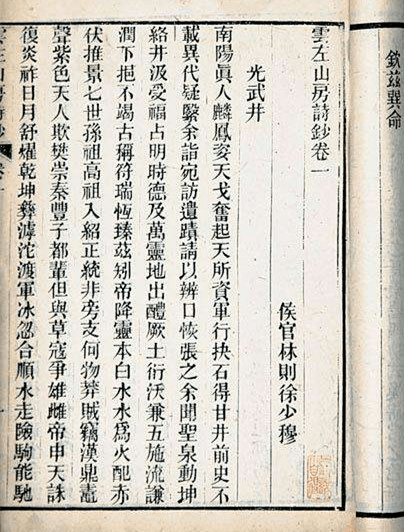 欽茲巽命
雲左山房詩鈔卷一
侯官林則徐少穆
光武井
南陽眞人麟鳳姿天戈奮起天所資軍行抉石得甘井前史不
載異代疑繄余詣宛訪遺蹟請以辨口恢張之余聞聖泉動坤
絡井汲受福占明時德及萬靈地出醴厥土衍沃兼五施流謙
潤下挹不竭古稱符瑞恆臻茲矧帝降靈本白水水爲火配赤
伏推景七世孫祖高祖入紹正統非旁支何物莽賊竊漢鼎鼃
聲紫色天人欺樊崇秦豐子都輩但與草寇爭雄雌帝申天誅
復炎祚日月舒燿乾坤彝滹沱渡軍冰忽合順水走險駒能馳